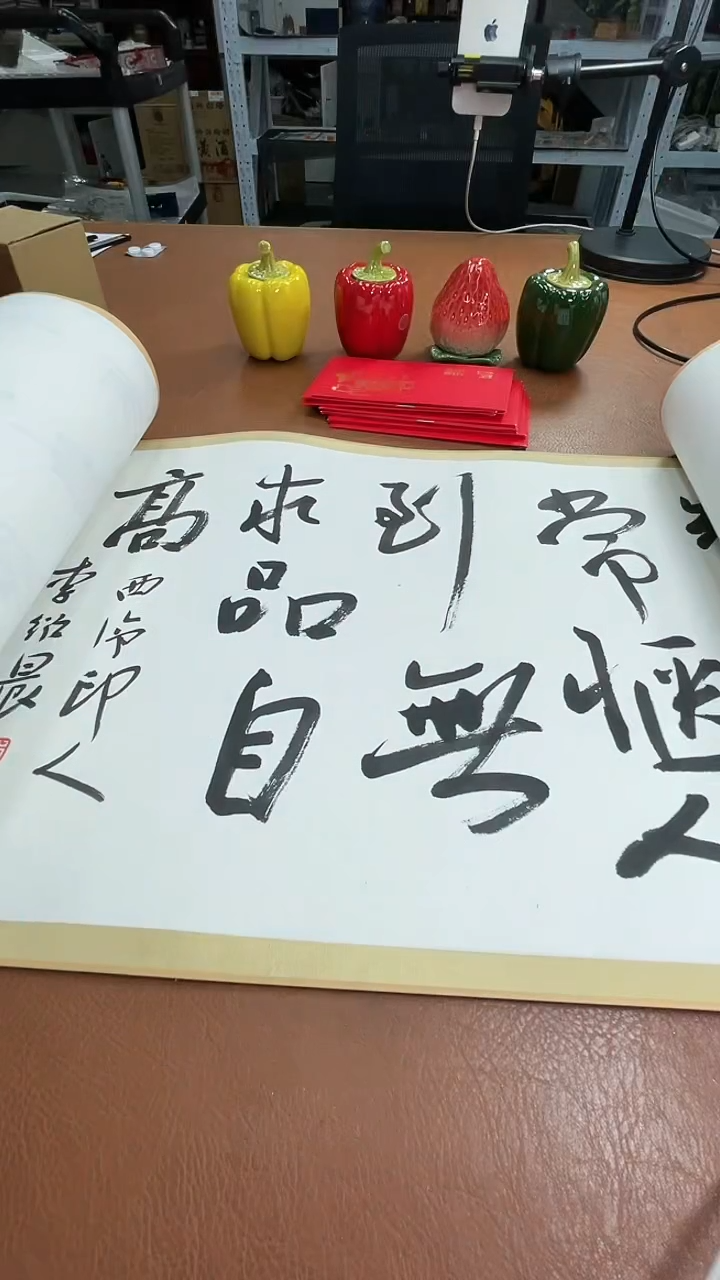 常愜人
到無
求品自
高
西泠印人
李紹